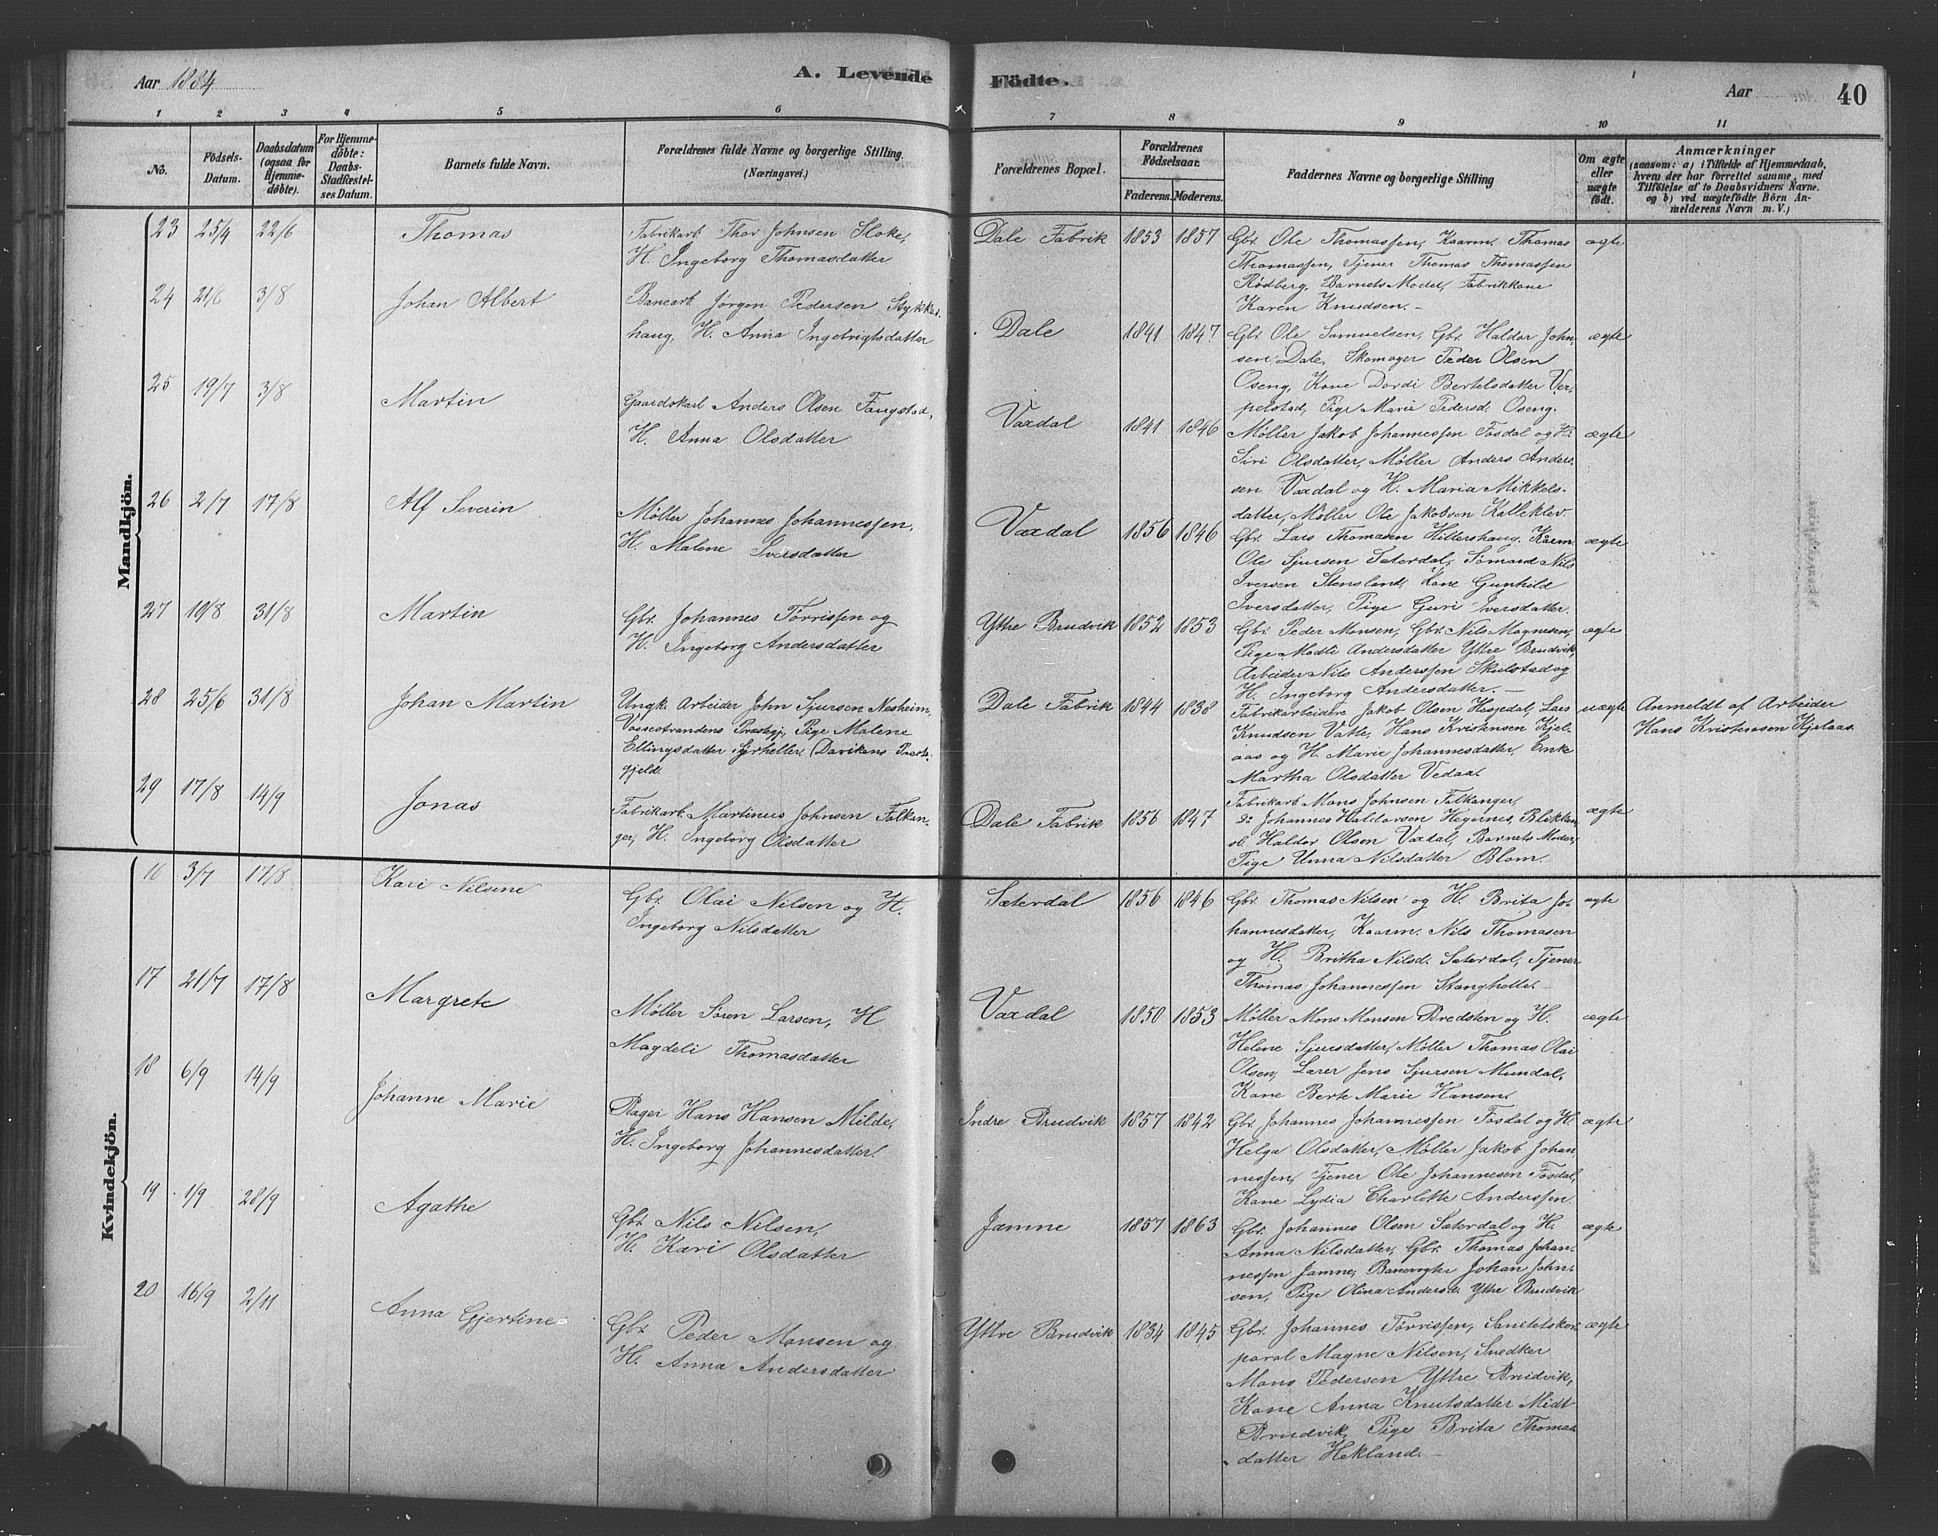 Aar 1884
A. Levende
Födte.
Aar
40
1 2 3 4 5 6 7 8 9 10 11
No.
Födsels-Datum.
Daabsdatum (ogsaa for Hjemme-døbte).
For Hjemme-døbte: Daabs-Stadfæstel-ses Datum.
Barnets fulde Navn.
Forældrenes fulde Navne og borgerlige Stilling (Næringsvei.)
Forældrenes Bopæl.
Forældrenes Födselsaar.
Faderens. Moderens.
Faddernes Navne og borgerlige Stilling
Om ægte eller uægte født.
Anmærkninger
(saasom: a) i Tilfælde af Hjemmedaab, hvem der har forrettet samme, med Tilföielse af to Daabsvidners Navne, og b) ved uægtefödte Börn An-melderens Navn m. V.)
Mandkjön.
23 25/4 22/6 Thomas
Fabrikarb. Thor Johnsen Sloke,
H. Ingeborg Thomasdatter
Dale Fabrik 1853 1857
Gbr. Ole Thomassen, Kaarm. Thomas
Thomassen, Tjener Thomas Thomassen
Rödberg, Barnets Moder, Fabrikkone
Karen Knudsen.
ægte
24 21/6 3/8 Johan Albert
Banearb. Jørgen Pedersen Stykkes-
haug, H. Anna Ingebrigtsdatter
Dale 1841 1847
Gbr. Ole Samuelsen, Gbr. Haldor John-
sen Dale, Skomager Peder Olsen
Oseng, Kone Dordi Bertelsdatter Ver-
pelstad, Pige Marie Pedersd. Oseng.
ægte
25 19/7 3/8 Martin
Gaardskarl Anders Olsen Fangstad,
H. Anna Olsdatter
Vaxdal 1841 1846
Møller Jakob Johannessen Fosdal og H.
Siri Olsdatter, Møller Anders Anders-
sen Vaxdal og H. Maria Mikkels-
datter, Møller Ole Jakobsen Kalleklev.
ægte
26 2/7 17/8 Alf Severin
Møller Johannes Johannessen,
H. Malene Iversdatter
Vaxdal 1856 1846
Gbr. Lars Thomasen Hiltershaug, Kaarm.
Ole Sjursen Sæterdal, Sømand Nils
Iversen Stensland, Kone Gunhild
Iversdatter, Pige Guri Iversdatter.
ægte
27 10/8 31/8 Martin
Gbr. Johannes Tørrissen og
H. Ingeborg Andersdatter
Yttre Brudvik 1852 1853
Gbr. Peder Monsen, Gbr. Nils Magnesen,
Pige Madli Andersdatter Yttre Brudvik
Arbeider Nils Anderssen Skulstad og
H. Ingeborg Andersdatter.
ægte
28 25/6 31/8 Johan Martin
Ungk. Arbeider John Sjursen Næsheim,
Vossestrandens Præstegj., Pige Malene
Ellingsdatter (Davikens Præste-
gjeld.
Dale Fabrik 1844 1838
Fabrikarbeidere Jakob Olsen Hesjedal, Lars
Knudsen Vatle, Hans Kristensen Kjel-
aas og H. Marie Johannesdatter, Enke
Martha Olsdatter Vedaa.
uægte
Anmeldt af Arbeider
Hans Kristensen Kjelaas.
29 17/8 14/9 Jonas
Fabrikarb. Martinus Johnsen Falkan-
ger, H. Ingeborg Olsdatter
Dale Fabrik 1856 1847
Fabrikarb. Mons Johnsen Falkanger,
do Johannes Haldorsen Hegernes, Blikken-
sl. Haldor Olsen Vaxdal, Barnets Moder,
Pige Unna Nilsdatter Blom.
ægte
Kvindekjön.
16 3/7 17/8 Kari Nilsine
Gbr. Olai Nilsen og H.
Ingeborg Nilsdatter
Sæterdal 1856 1846
Gbr. Thomas Nilsen og H. Brita Jo-
hannesdatter, Kaarm. Nils Thomasen
og H. Britha Nilsd. Sæterdal, Tjener
Thomas Johannessen Stanghelle.
ægte
17 21/7 17/8 Margrete
Møller Søren Larsen, H
Magdeli Thomasdatter
Vaxdal 1850 1853
Møller Mons Monsen Bredsten og H.
Helene Sjursdatter, Møller Thomas Olai
Olsen, Lærer Jens Sjursen Mundal,
Kone Berte Marie Hansen.
ægte
18 6/9 14/9 Johanne Marie
Bager Hans Hansen Milde,
H. Ingeborg Johannesdatter.
Indre Brudvik 1857 1842
Gbr. Johannes Johannessen Fosdal og H.
Helga Olsdatter, Møller Jakob Johan
nessen, Tjener Ole Johannesen Fosdal,
Kone Lydia Charlotte Anderssen.
ægte
19 1/9 28/9 Agathe
Gbr. Nils Nilsen,
H. Kari Olsdatter
Jamne 1857 1863
Gbr. Johannes Olsen Sæterdal og H.
Anna Nilsdatter, Gbr. Thomas Johan-
nessen Jamne, Banevogter Johan John-
sen, Pige Olina Andersd. Yttre Brudvik
ægte
20 16/9 2/11 Anna Gjertine
Gbr. Peder Monsen og
H. Anna Andersdatter
Yttre Brudvik 1834 1845
Gbr. Johannes Tørrissen, Sanitetskor-
poral Magne Nilsen, Snedker
Mons Pedersen Yttre Brudvik,
Kone Anna Knutsdatter Midt
Brudvik, Pige Brita Thomas
datter Hekland.
ægte